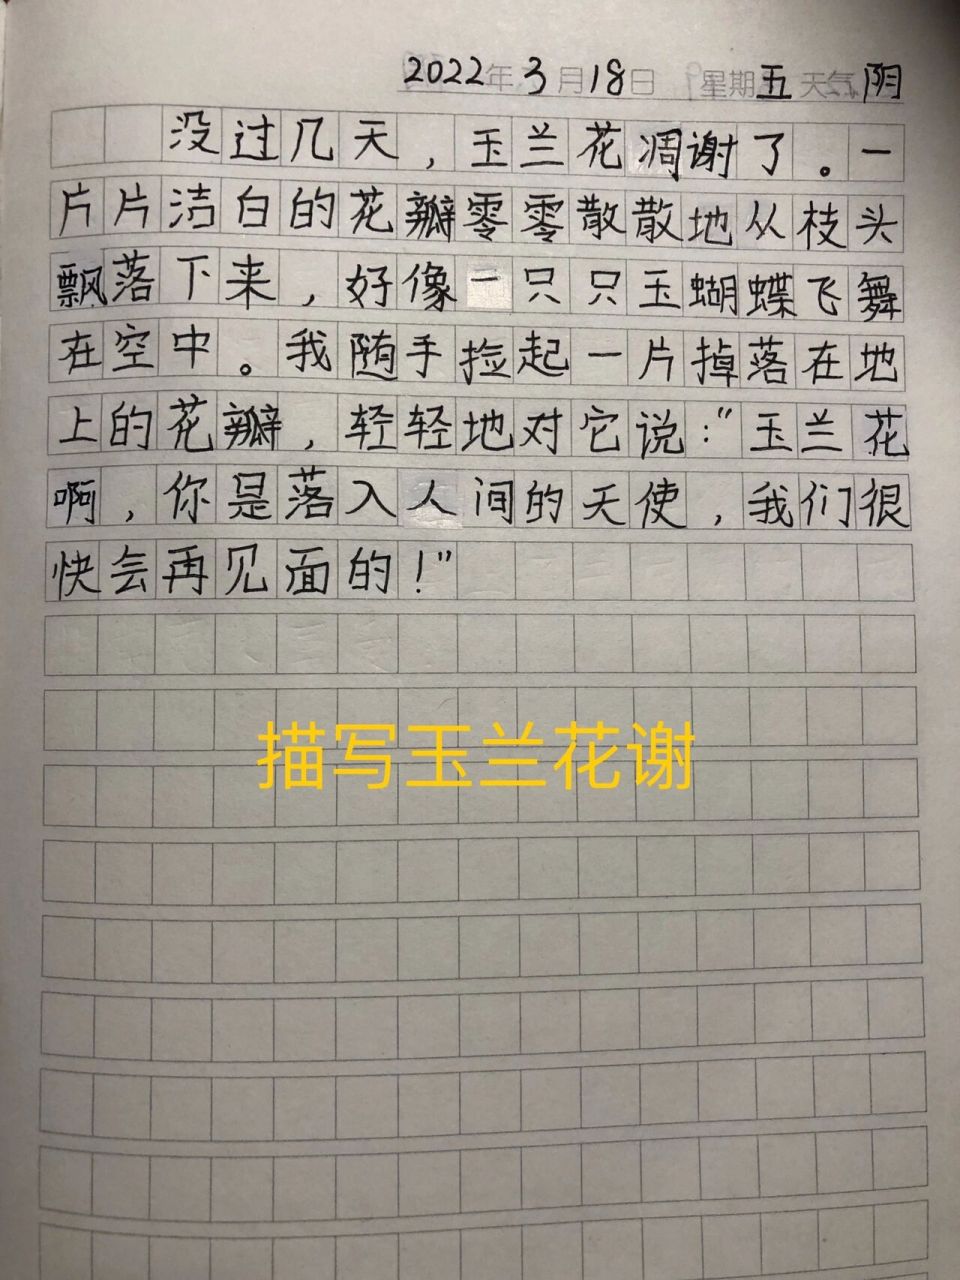 2022年3月18日 星期五 天气阴
没过几天，玉兰花凋谢了。一
片片洁白的花瓣零零散散地从枝头
飘落下来，好像一只只玉蝴蝶飞舞
在空中。我随手捡起一片掉落在地
上的花瓣，轻轻地对它说："玉兰花
啊，你是落入人间的天使，我们很
快会再见面的！"
描写玉兰花谢